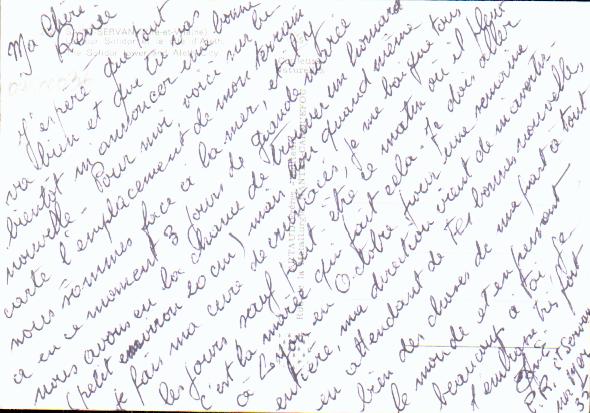 Ma Chère
Renée
J'espère que tout
va bien et que tu vas
bientôt m'annoncer une bonne
nouvelle - Pour moi, voici sur la
carte l'emplacement de mon terrain
nous sommes face à la mer, et il y
a en ce moment 3 jours de grande marée
nous avons eu la chance de trouver un homard
(petit environ 20 cm) mais bon quand même
je fais ma cure de crustacés, je me baigne tous
les jours sauf peut-être ce matin où il pleut
c'est la marée qui fait cela. Je dois aller
à Lyon en Octobre pour une semaine
entière, ma direction vient de m'avertir -
en attendant de tes bonnes nouvelles,
bien des choses de ma part à tout
le monde et en pensant
beaucoup à toi je
t'embrasse très fort
P.R. St Servan
sur mer